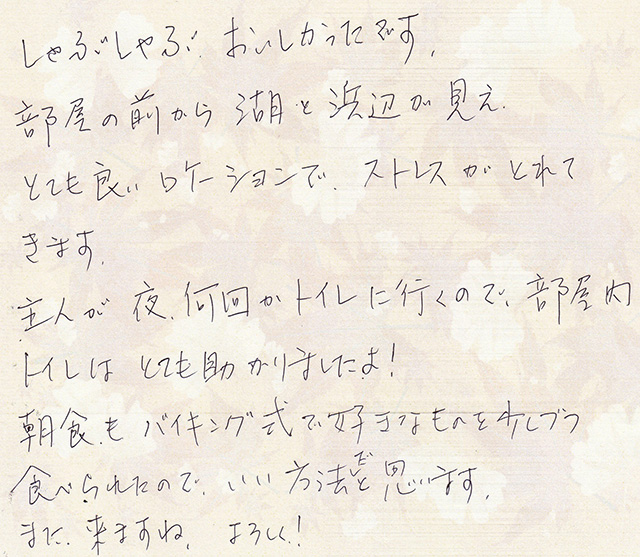 しゃぶしゃぶ、おいしかったです。
部屋の前から 湖と浜辺が見え、
とても良いロケーションで、ストレスがとれて
きます。
主人が 夜、何回かトイレに行くので、部屋内
トイレは とても助かりましたよ！
朝食も バイキング式で好きなものを少しづつ
食べられたので、いい方法だと思います。
また、来ますね。よろしく！